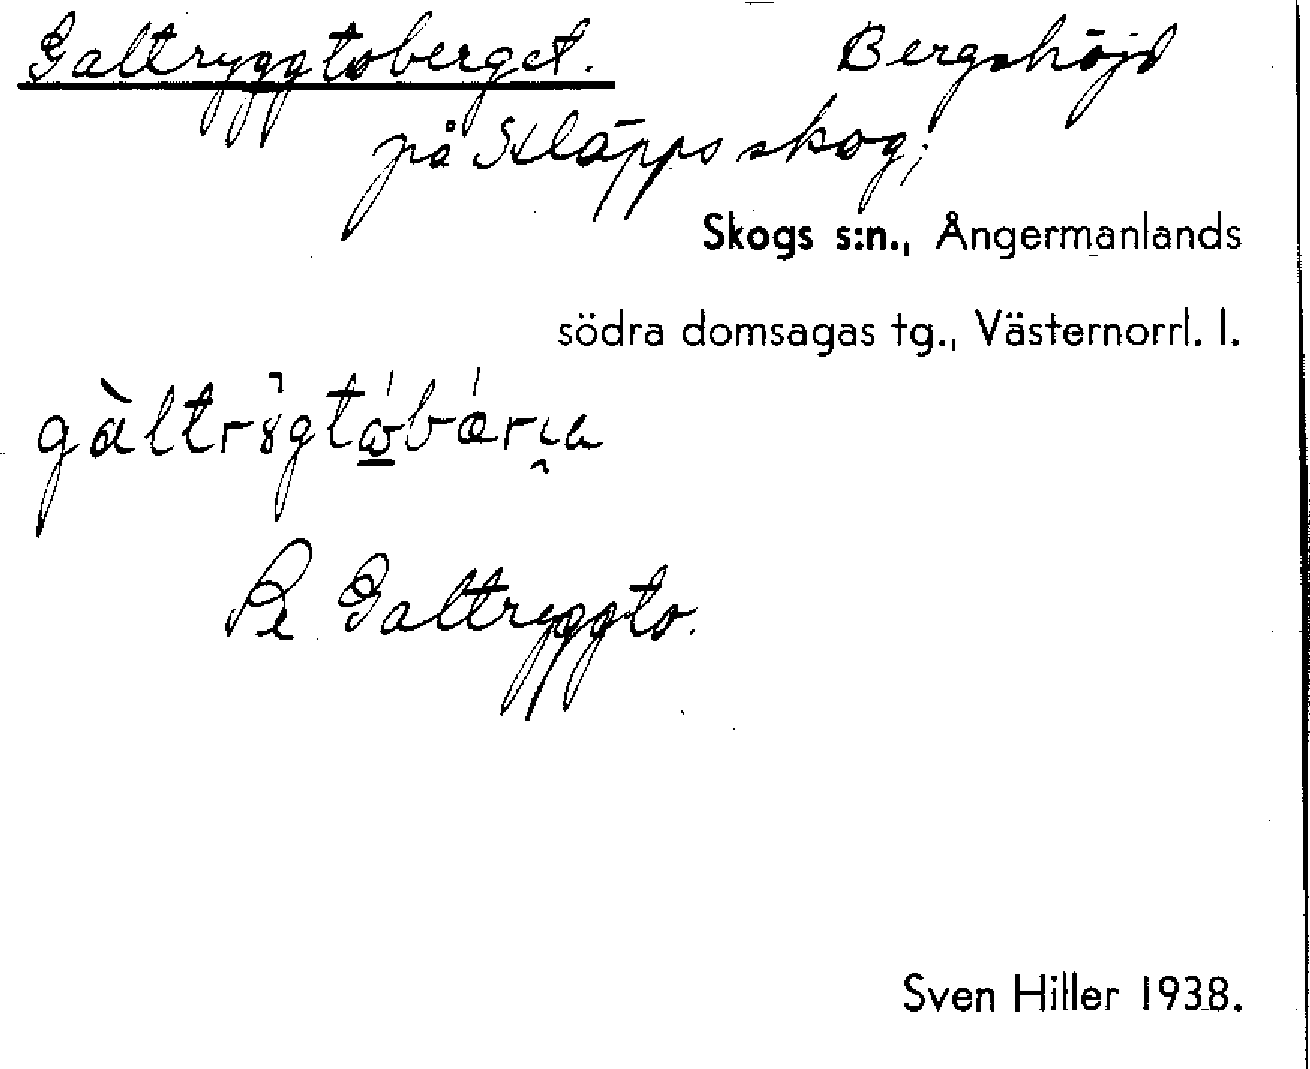 Galtryggtoberget. Bergshöjd
på Kläppsskog;
Skogs s:n., Ångermanlands
södra domsagas tg., Västernorrl. l.
Se Galtryggto.
Sven Hiller 1938.